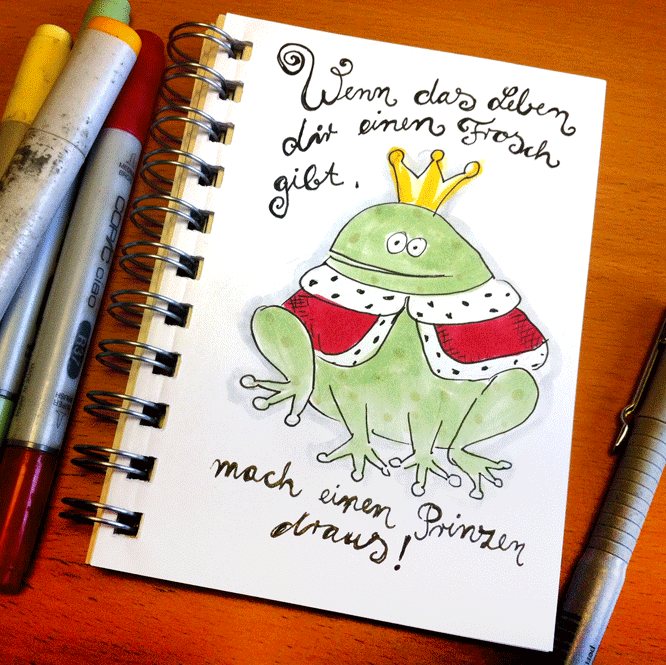 Wenn das Leben
dir einen Frosch
gibt.
mach einen Prinzen
draus!
COPIC ciao
R37